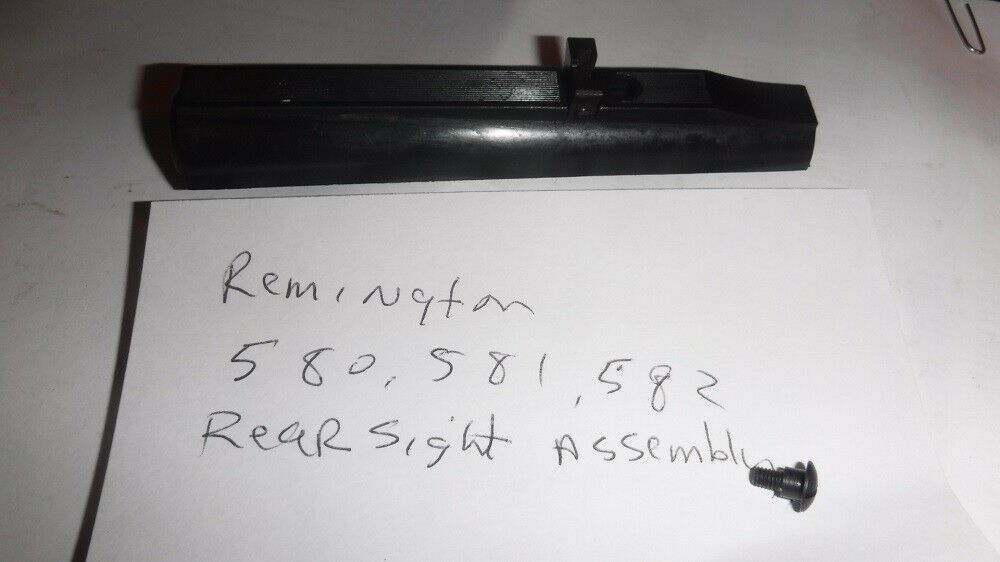 Remington
580, 581, 582
Rear Sight Assembly